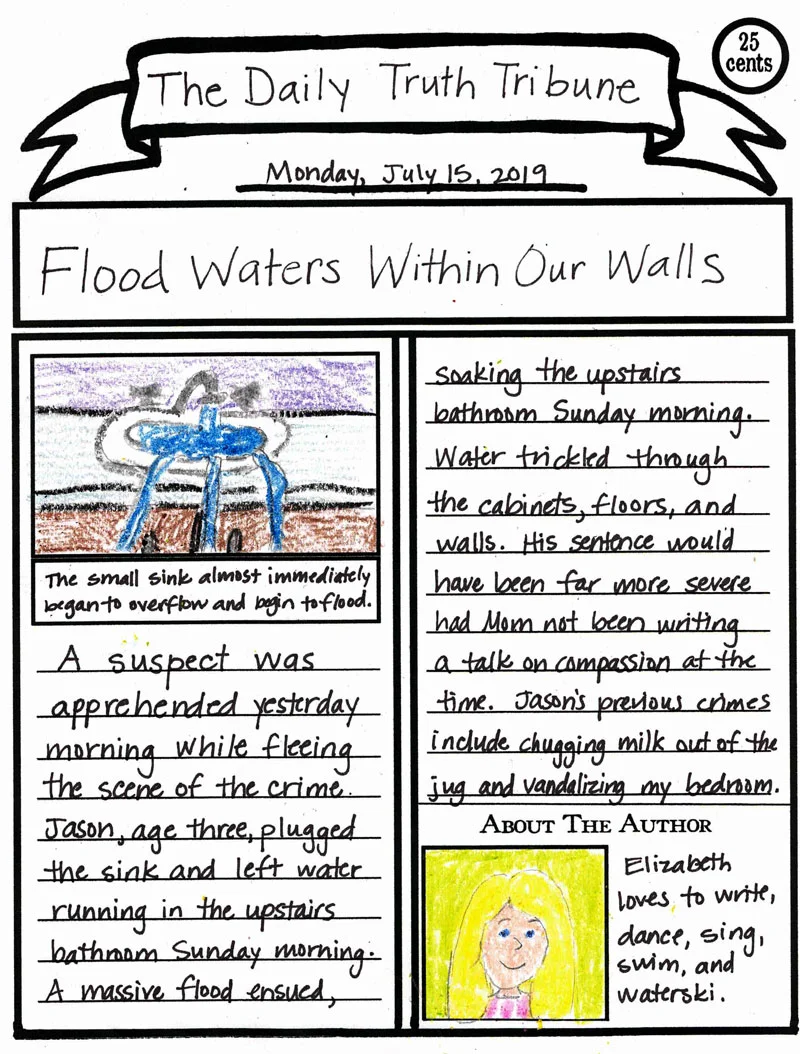 25
cents
The Daily Truth Tribune
Monday, July 15, 2019
Flood Waters Within Our Walls
The small sink almost immediately
began to overflow and begin to flood.
A suspect was
apprehended yesterday
morning while fleeing
the scene of the crime.
Jason, age three, plugged
the sink and left water
running in the upstairs
bathroom Sunday morning.
A massive flood ensued,
soaking the upstairs
bathroom Sunday morning.
Water trickled through
the cabinets, floors, and
walls. His sentence would
have been far more severe
had Mom not been writing
a talk on compassion at the
time. Jason's previous crimes
include chugging milk out of the
jug and vandalizing my bedroom.
About The Author
Elizabeth
loves to write,
dance, sing,
swim, and
waterski.